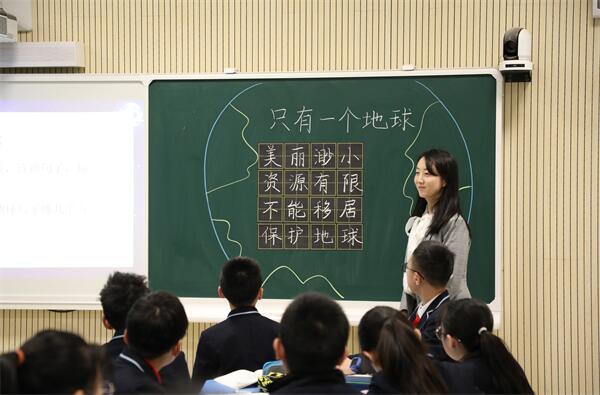 只有一个地球
美丽渺小
资源有限
不能移居
保护地球